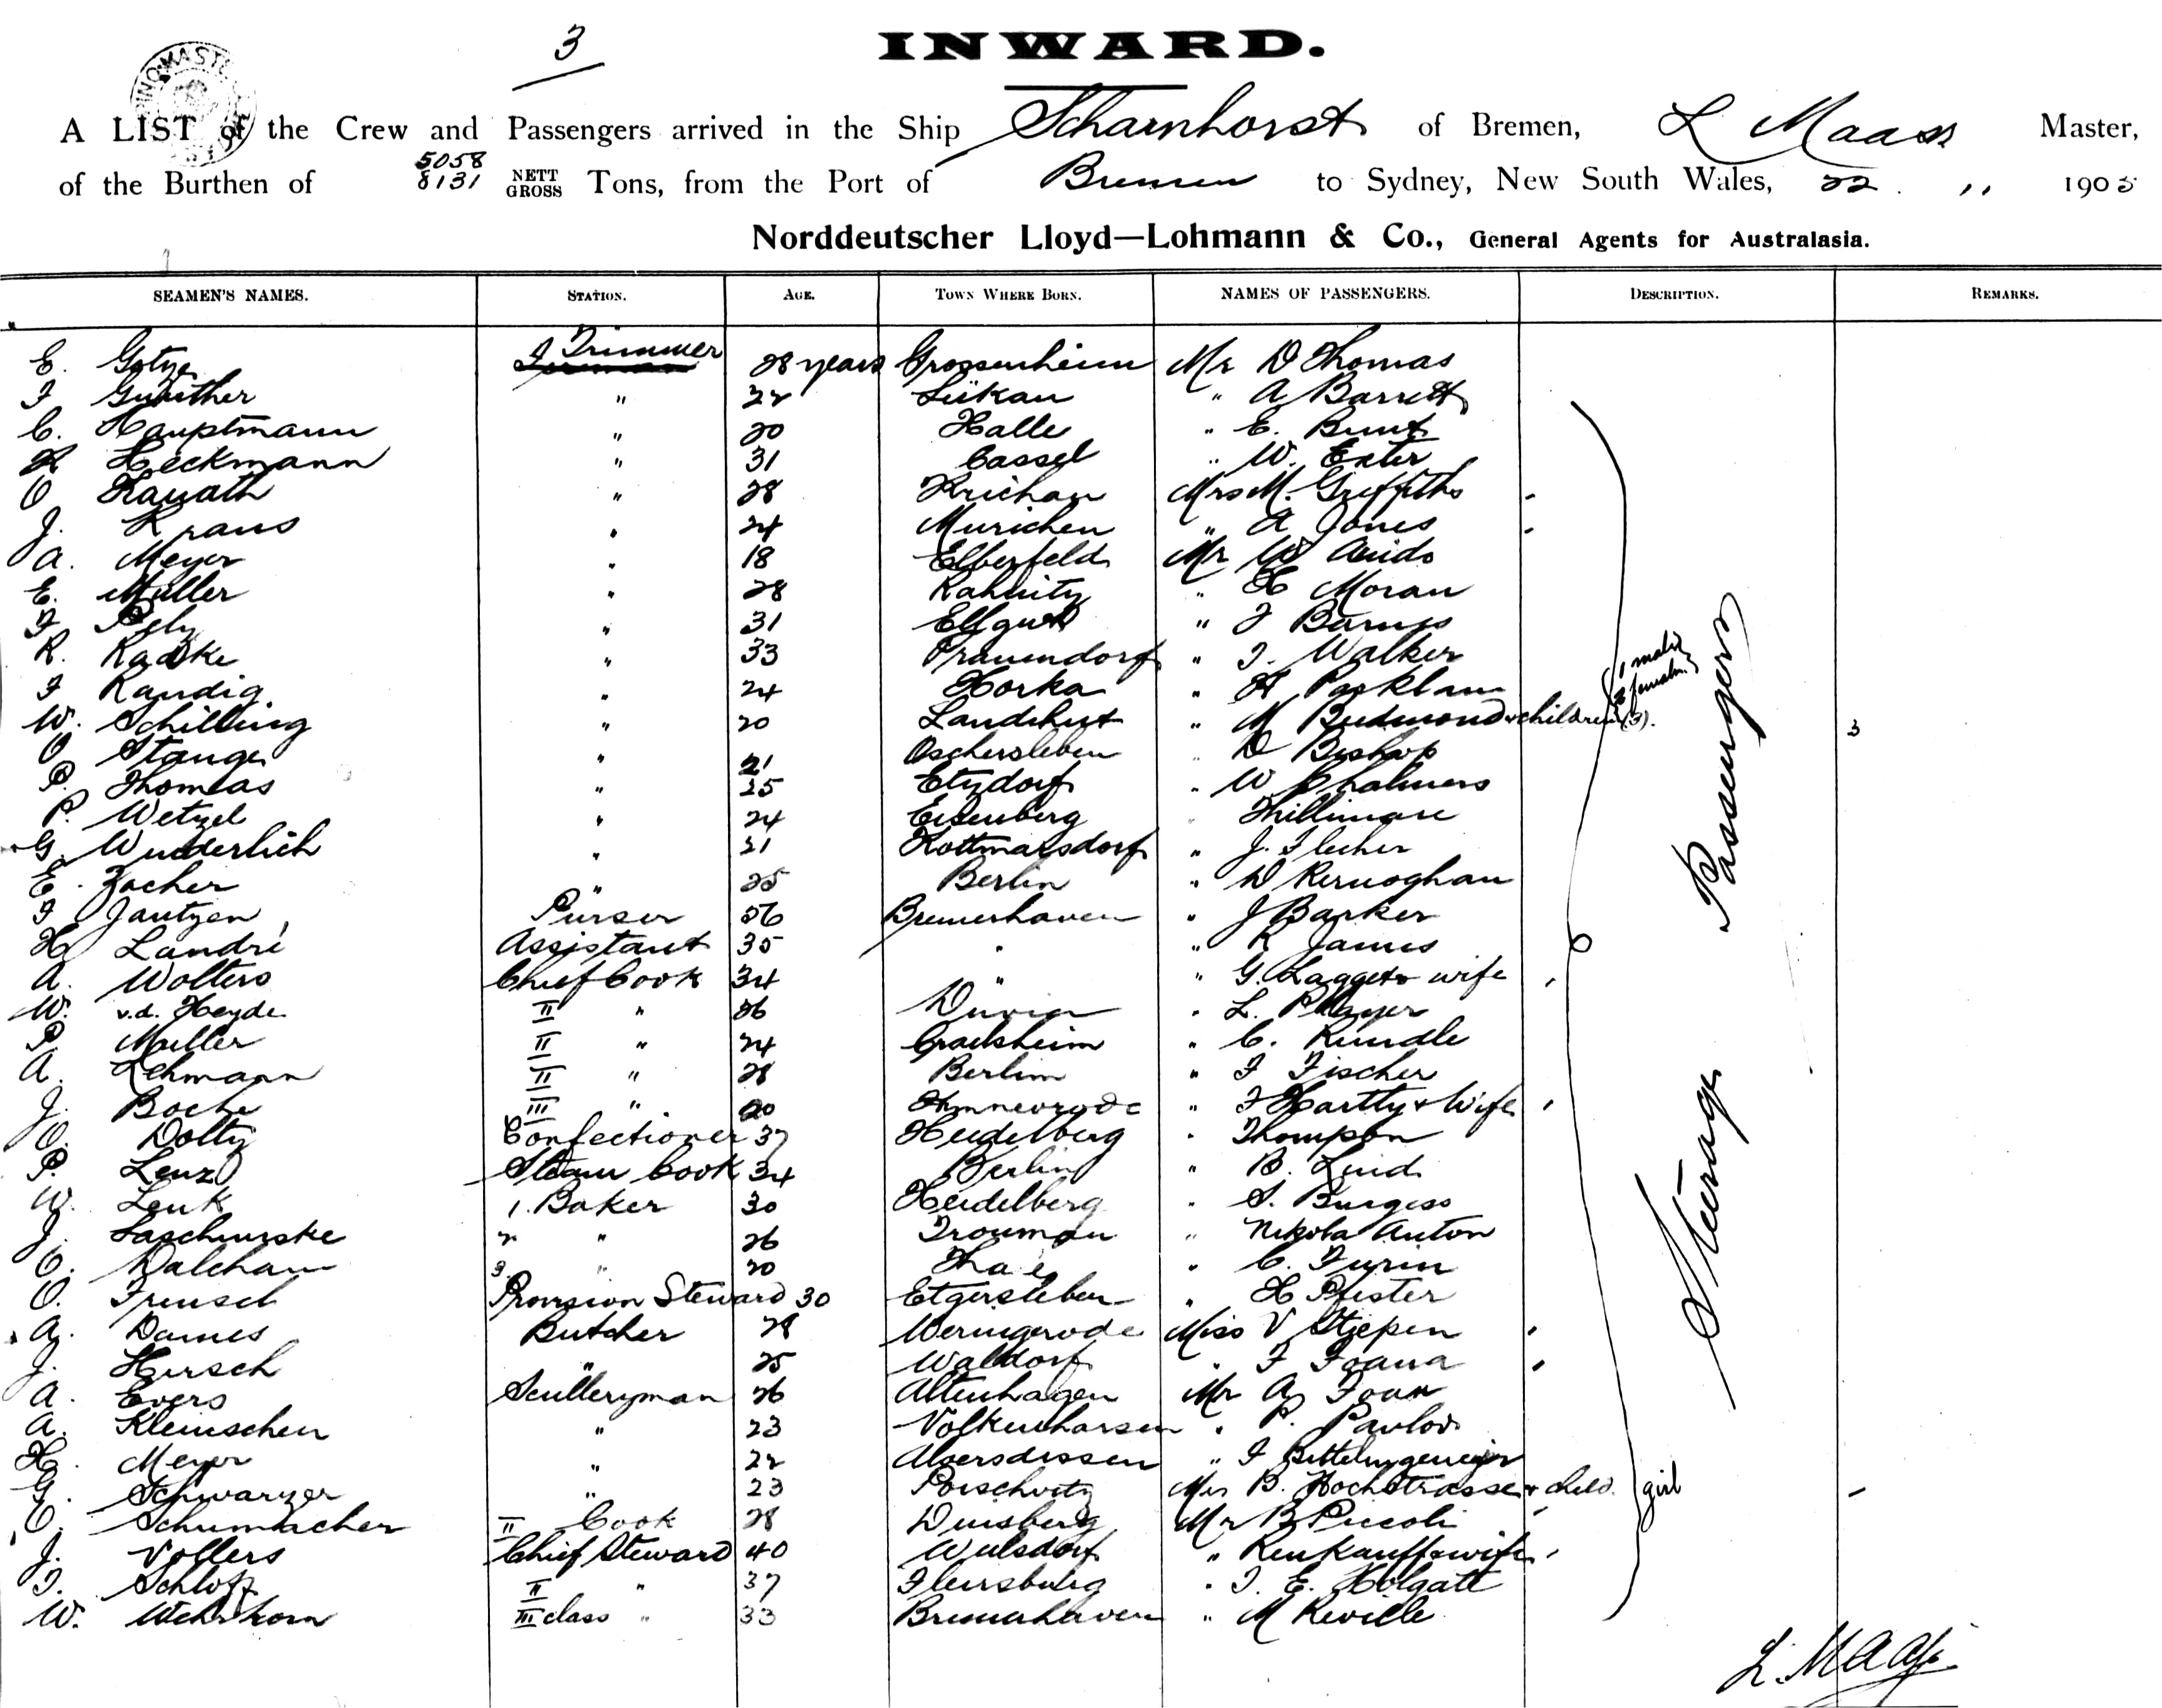 3
INWARD.
A LIST of the Crew and Passengers arrived in the Ship Scharnhorst of Bremen, L Maass Master,
of the Burthen of 5058 8131 NETT GROSS Tons, from the Port of Bremen to Sydney, New South Wales, 22 . ,, 1905
Norddeutscher Lloyd—Lohmann & Co., General Agents for Australasia.
SEAMEN'S NAMES. STATION. AGE. TOWN WHERE BORN. NAMES OF PASSENGERS. DESCRIPTION. REMARKS.
E. Gotze Trimmer 28 years Grossenheim Mr D Thomas
F Gunther " 22 Lükau " A Barrett
C. Hauptmann " 20 Halle " E. Bunt
Heckmann " 31 Cassel " W. Exter
O " 28 Krichau Mrs M. Griffiths
J. Kraus " 24 Munchen " A Jones
A. Meyer " 18 Elberfeld Mr W
E. Muller " 28 " H Moran
F " 31 Ellguth " F Barnes
R. Radtke " 33 Frauendorf " J. Walker
F Randig " 24 Horka " H 1 male
W. Schilling " 20 Landshut " M Budmond & children (3). 2 female 3
O Stange " 21 Oschersleben " D Bishop
P. Thomas " 25 Etzdorf " W Chalmers
P. Wetzel " 24 Eisenberg "
G. Wunderlich " 21 Kottmarsdorf " J. Flecher
E. Zacher " 25 Berlin " D Kernoghan
F Jantzen Purser 56 Bremerhaven " J Barker
H Landré Assistant 35 " " K James
A. Wolters Chief Cook 34 " " G. Laggett & wife
W. v.d. Heyde II " 26 " L. Player
P Muller II " 24 Crailsheim " C. Rundle
A. Lehmann II " 28 Berlin " F Fischer
J. Boche III " 20 " F Hartly & Wife
O. Dolty Confectioner 37 Heidelberg " Thompson
P. Lenz Steam Cook 34 Berlin " B. Lind
W. Lenk 1. Baker 30 Heidelberg " S. Burgess
J. Laschinske 2 " 26 " Nikola Anton
O. Dalchau 3. " 20 Thale " C. Furin
O. Freusch Provision Steward 30 Etgersleben " H Pfister
A. Dames Butcher 28 Weringerode Miss V Stiepen
J. Hirsch " 25 Waldorf " F Foana
A. Evers Scullery man 26 Altenhagen Mr A Foan
A. Kleinschen " 23 Volkenharsen " P. Pavlov
H. Meyer " 22 Alversdissen " F
G. Schwarzer " 23 Porschwitz Mrs B. Hochstrasser & child. girl
O. Schumacher II Cook 28 Duisberg Mr B Piccoli
J. Vollers Chief Steward 40 Wulsdorf " Renkauff & wife
J. Schloff II " 37 Flensburg " J. E. Holgate
W. Wehrkorn III class " 33 Bremerhaven " M Reville
Steerage Passengers
L. Maass